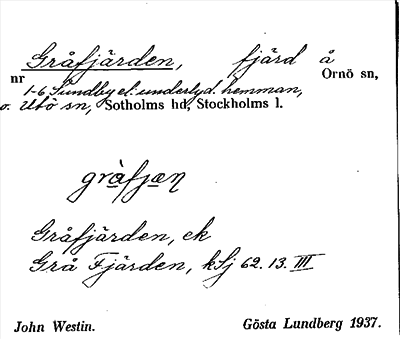 Gråfjärden, fjärd å
nr Ornö sn,
1-6 Sundby el. underlyd. hemman,
o. Utö sn, Sotholms hd, Stockholms l.
gràfjæn
Gråfjärden, ek
Grå Fjärden, kSj 62.13.III
John Westin. Gösta Lundberg 1937.